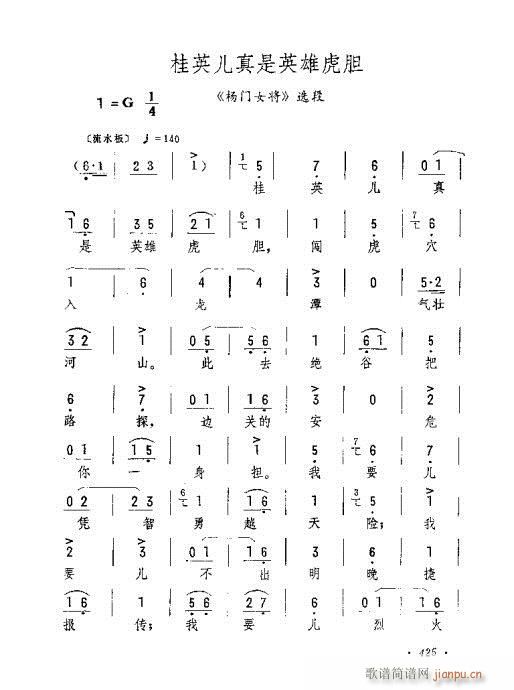 桂英儿真是英雄虎胆
《杨门女将》选段
1=G 1/4
〔流水板〕 ♩=140
(6·1 | 23 | 1) | 5 | 7 | 6 | 01 |
桂 英 儿 真
16 | 35 | 21 | 1 | 1 | 5 | 6 |
是 英雄 虎 胆， 闯 虎 穴
1 | 6 | 4 | 4 | 3 | 0 | 5·2 |
入 龙 潭 气壮
32 | 1 | 05 | 5 | 1 | 61 | 5 |
河 山。 此 去 绝 谷 把
6 | 7 | 01 | 16 | 3 | 0 | 2 |
路 探， 边 关的 安 危
01 | 1 | 1 | 1 | 5 | 6 | 7 |
你 一 身 担。 我 要 儿
02 | 23 | 1 | 16 | 1 | 5 | 1 |
凭 智 勇 越 天 险； 我
2 | 3 | 01 | 01 | 3 | 2 | 3 |
要 儿 不 出 明 晚 捷
16 | 1 | 16 | 27 | 5 | 01 | 1 |
报 传； 我 要 儿 烈 火
·425·
歌谱简谱网
jianpu.cn